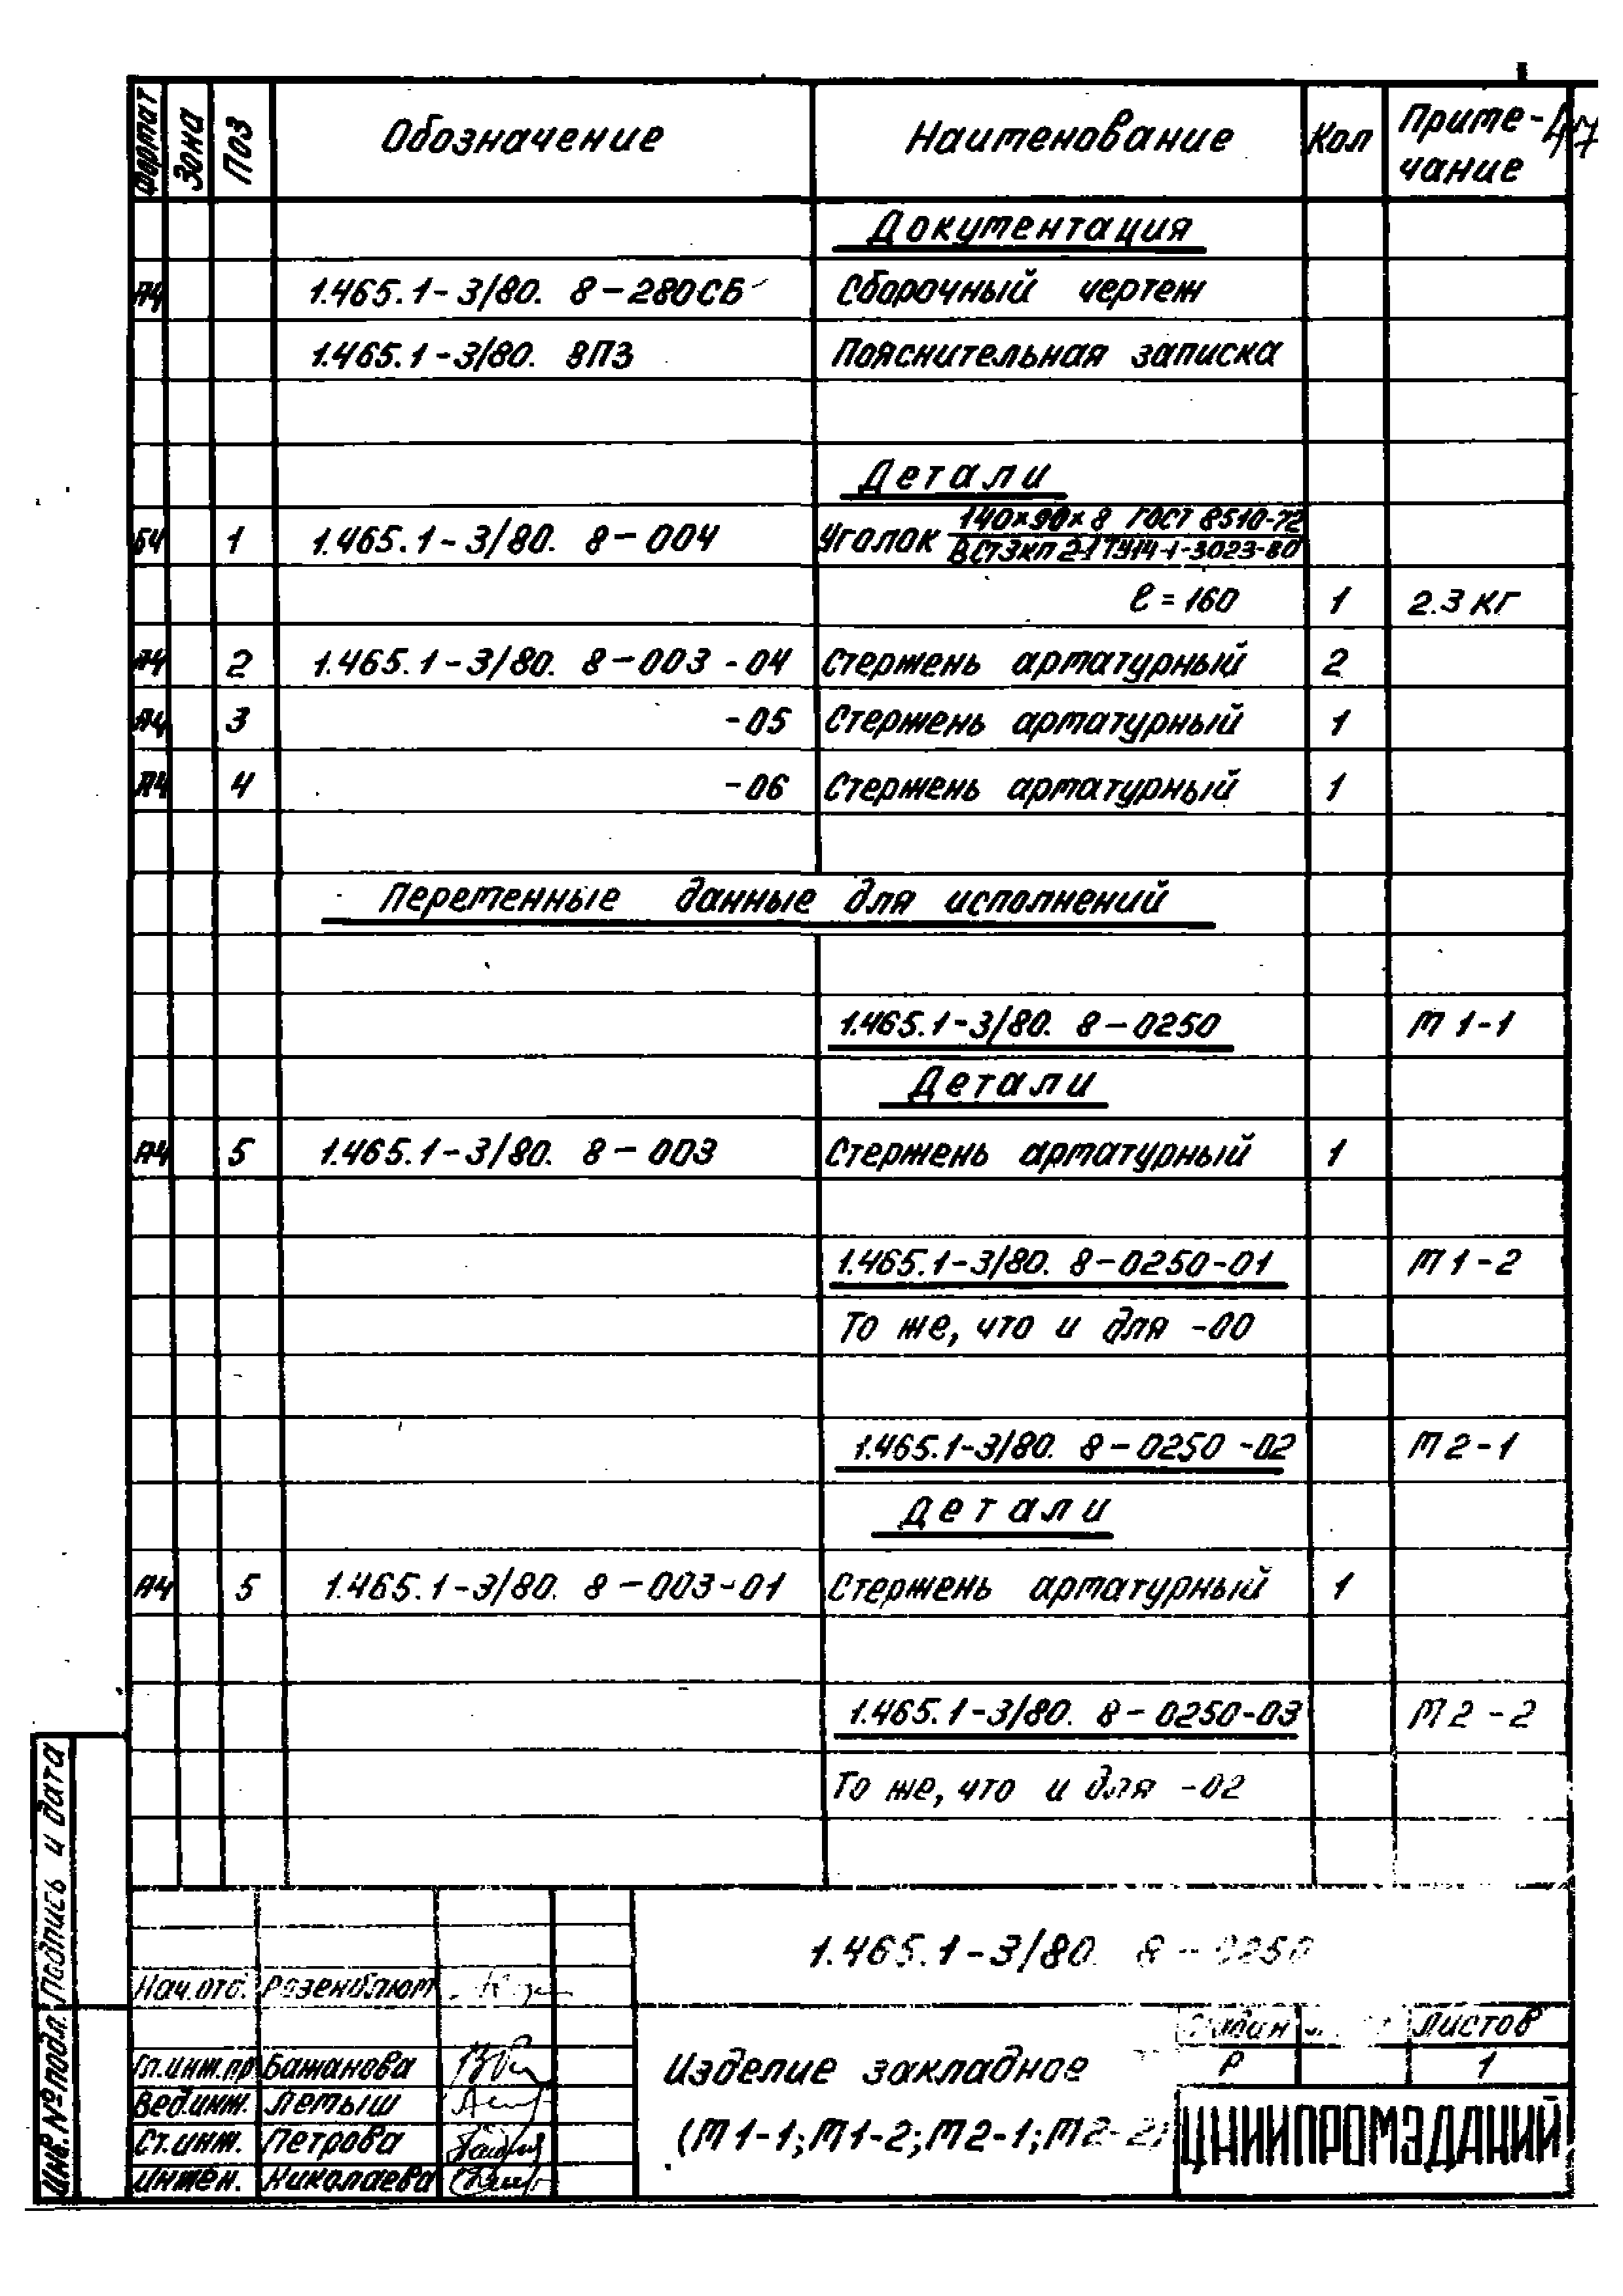 Формат Зона Поз Обозначение Наименование Кол Приме-
чание
47
Документация
А4 1.465.1-3/80. 8-280СБ Сборочный чертеж
1.465.1-3/80. 8ПЗ Пояснительная записка
Детали
БЧ 1 1.465.1-3/80. 8-004 Уголок 140×90×8 ГОСТ 8510-72
ВСт3кп2-1 ТУ14-1-3023-80
ℓ=160 1 2.3 кг
А4 2 1.465.1-3/80. 8-003-04 Стержень арматурный 2
А4 3 -05 Стержень арматурный 1
А4 4 -06 Стержень арматурный 1
Переменные данные для исполнений
1.465.1-3/80. 8-0250 М1-1
Детали
А4 5 1.465.1-3/80. 8-003 Стержень арматурный 1
1.465.1-3/80. 8-0250-01 М1-2
То же, что и для -00
1.465.1-3/80. 8-0250-02 М2-1
Детали
А4 5 1.465.1-3/80. 8-003-01 Стержень арматурный 1
1.465.1-3/80. 8-0250-03 М2-2
То же, что и для -02
Подпись и дата
Инв. № подл.
1.465.1-3/80. 8-0250
Нач.отд. Розенблюм
Гл.инж.пр Бажанова
Вед.инж. Летыш
Ст.инж. Петрова
Инжен. Николаева
Изделие закладное
(М1-1; М1-2; М2-1; М2-2)
Листов
Р 1
ЦНИИПРОМЗДАНИЙ